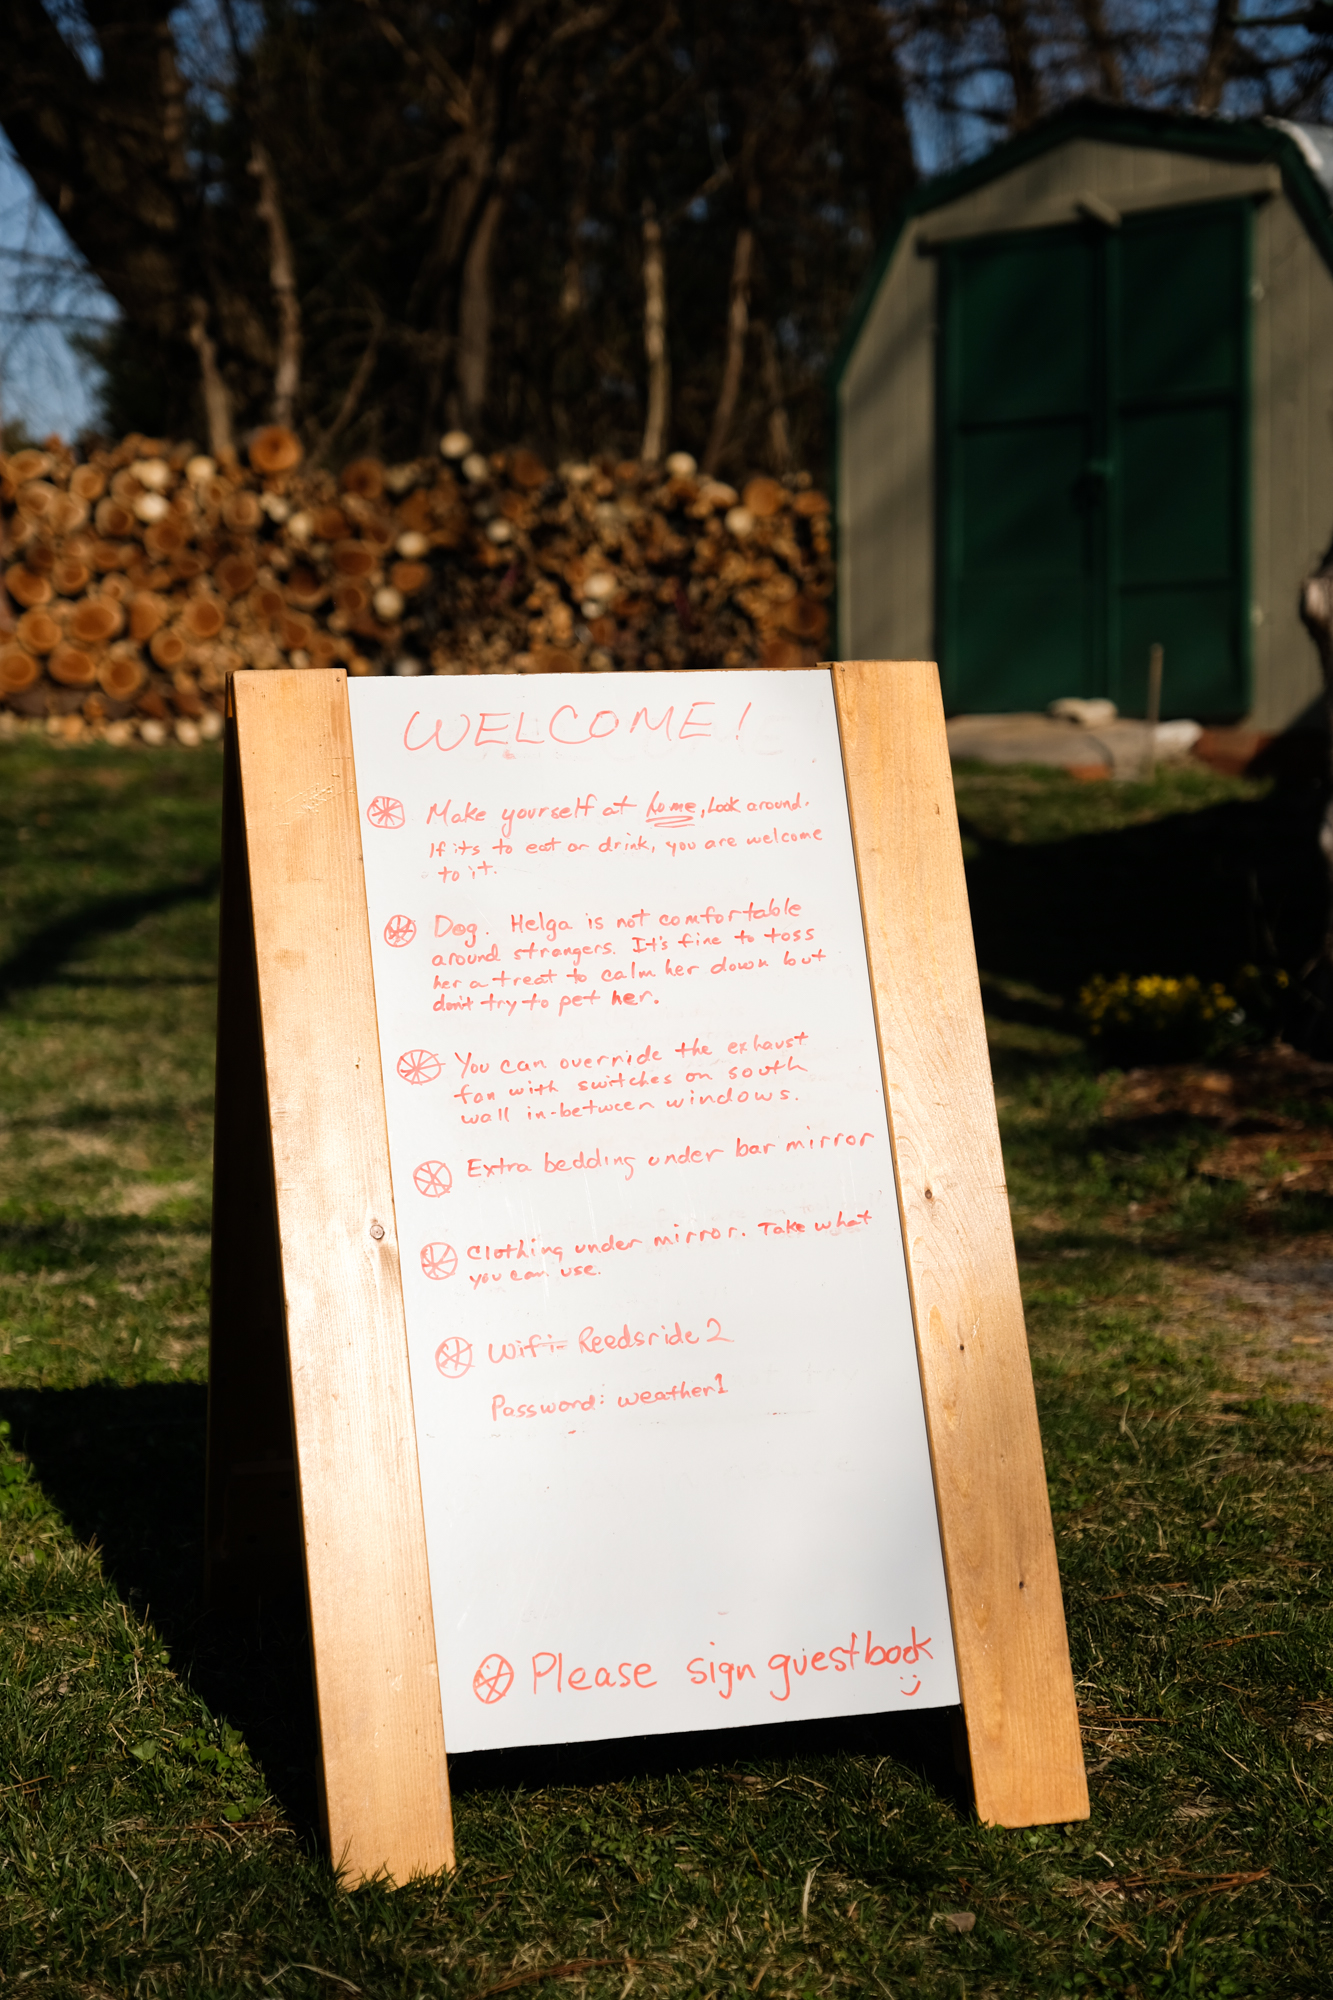 WELCOME!
Make yourself at home, Look around.
If its to eat or drink, you are welcome
to it.
Dog. Helga is not comfortable
around strangers. It's fine to toss
her a treat to calm her down but
don't try to pet her.
You can override the exhaust
fan with switches on south
wall in-between windows.
Extra bedding under bar mirror
Clothing under mirror. Take what
you can use.
Wifi- Reedsride 2
Password: weather1
Please sign guestbook